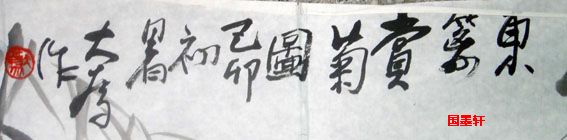 東籬賞菊圖己卯初暑大為作
国墨轩